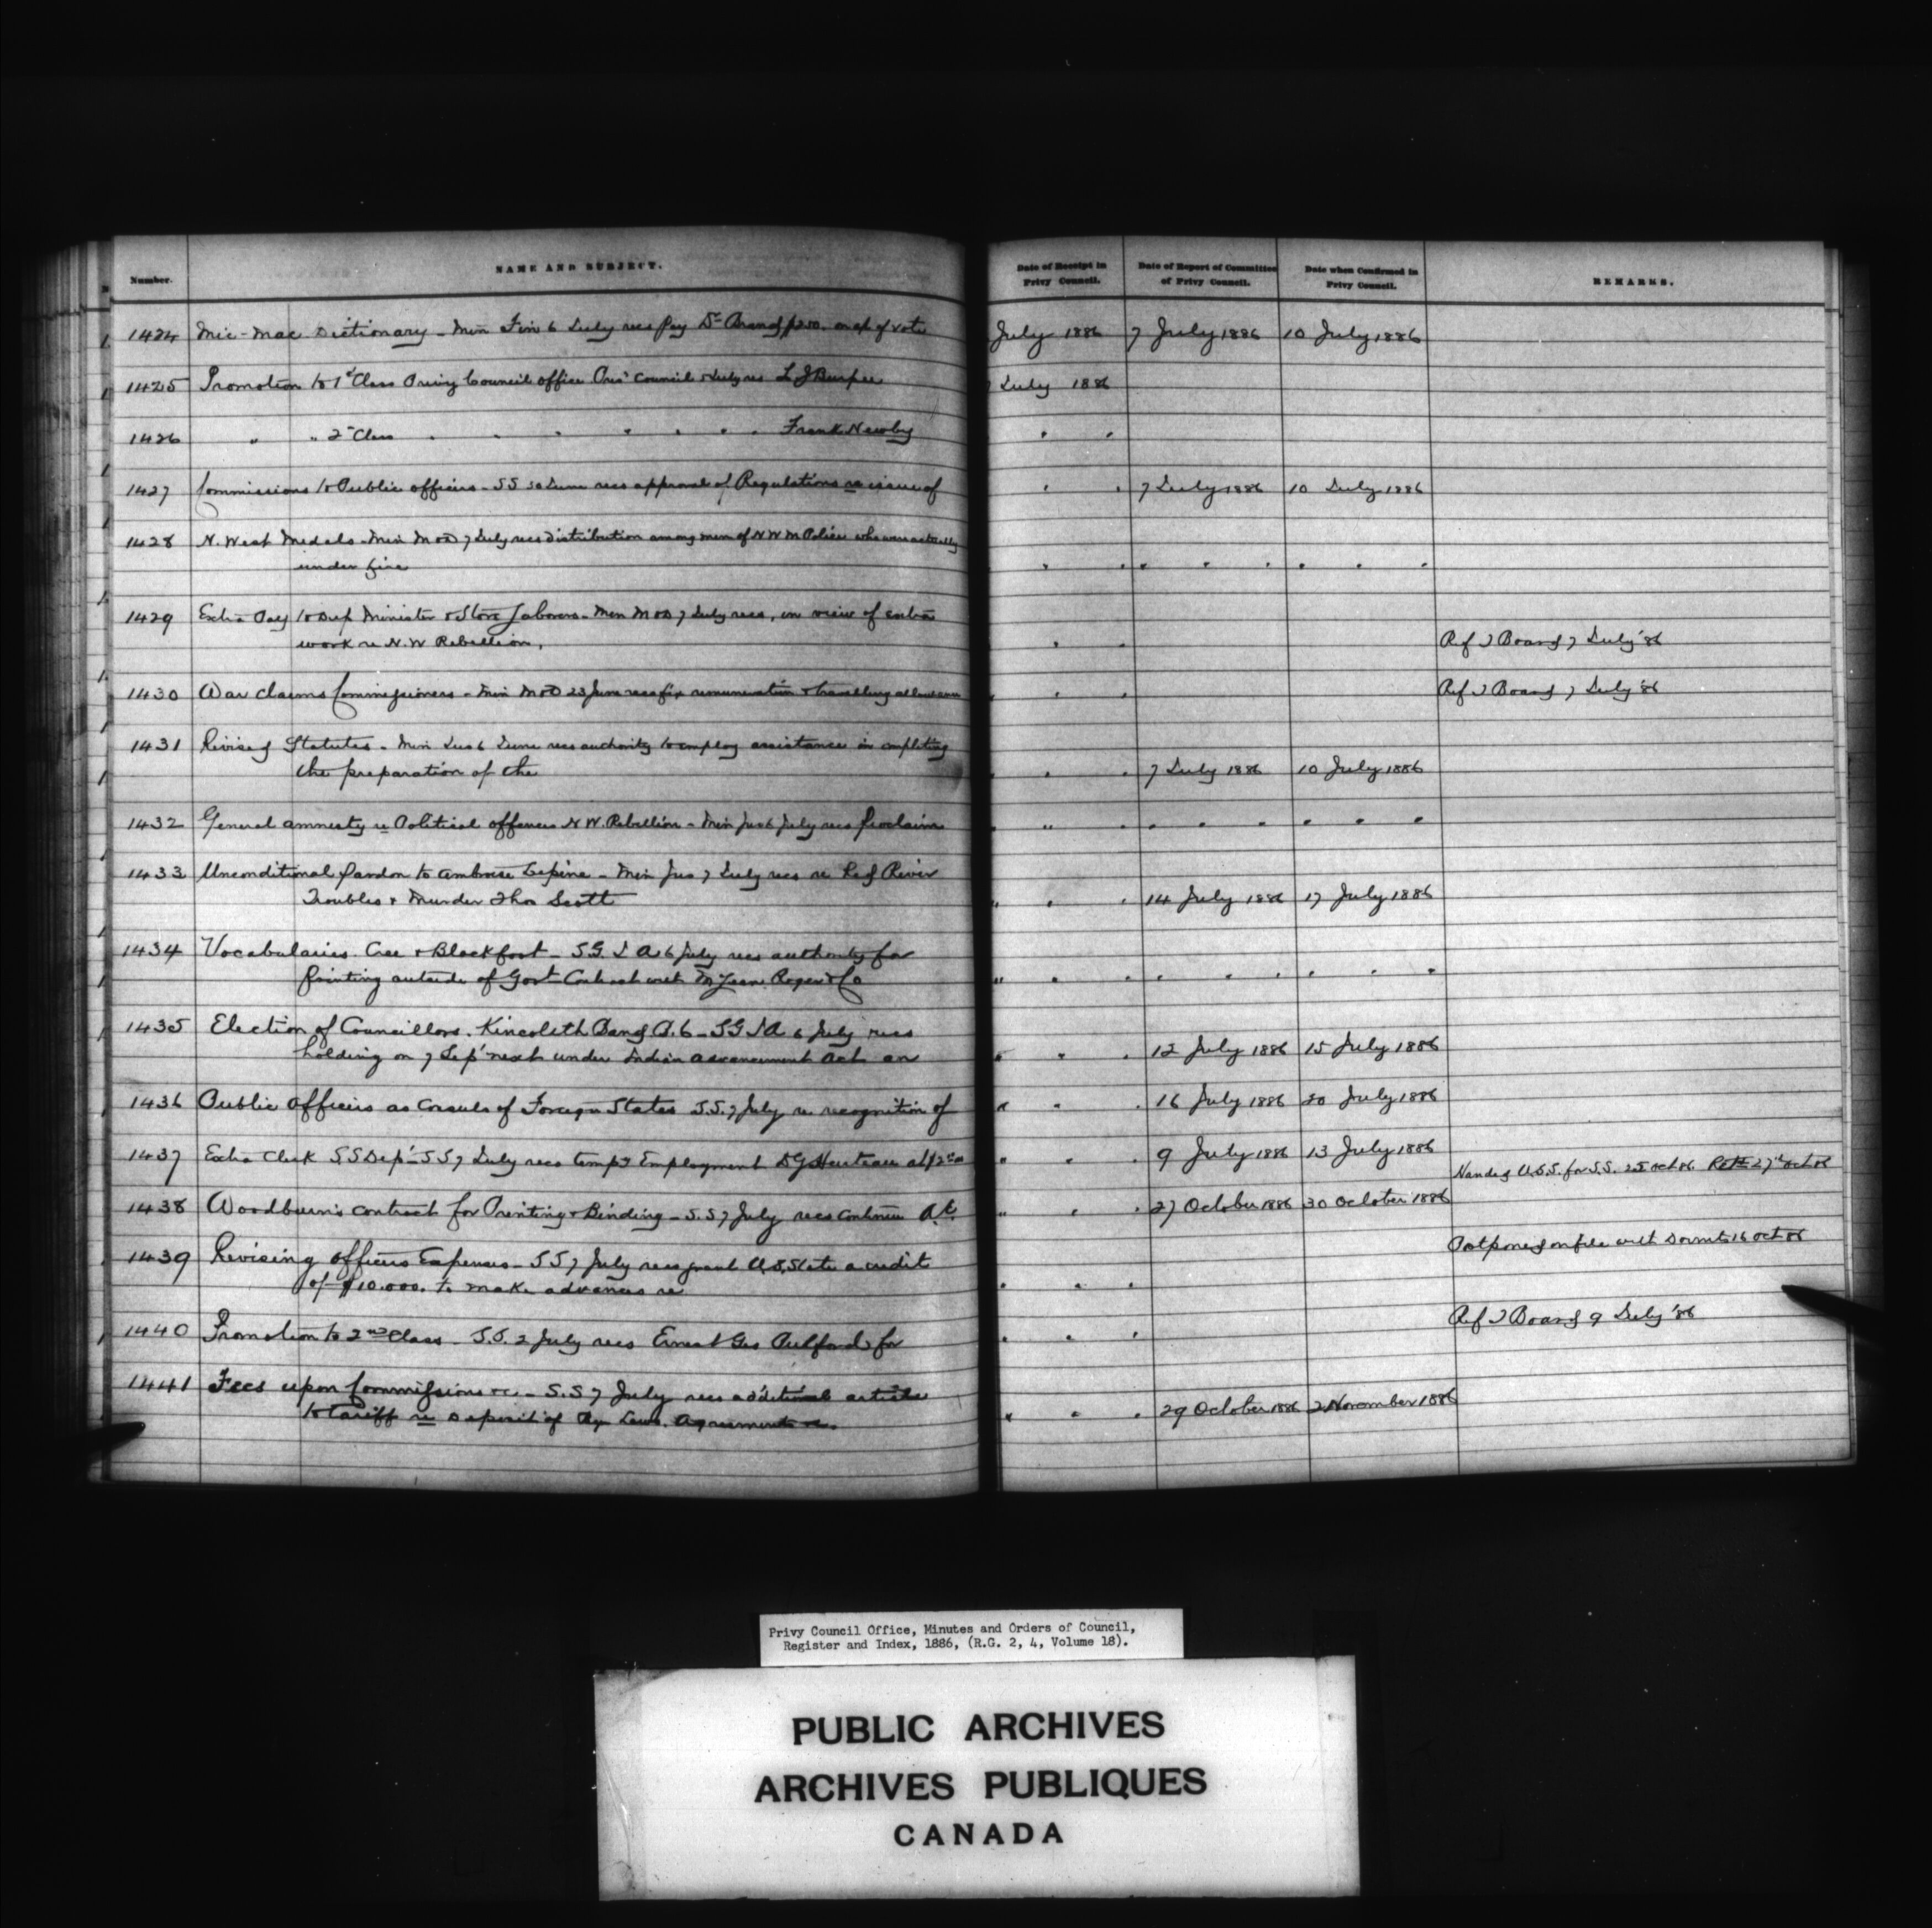 Number. NAME AND SUBJECT. Date of Receipt in Privy Council. Date of Report of Committee of Privy Council. Date when Confirmed in Privy Council. REMARKS.
1424 Mic-Mac Dictionary - Min Fin 6 July recs pay Dr Rand $250. on a/c of vote July 1886 7 July 1886 10 July 1886
1425 Promotion to 1st Class Privy Council office Pres' Council July recs L J Burpee July 1886
1426 " " 2nd Class " " " " " " " Frank Newby " "
1427 Commissions to Public officers - SS 30 June recs approval of Regulations re issue of " " 7 July 1886 10 July 1886
1428 N. West Medals - Min M&D 7 July recs distribution among men of N W M Police who were actually
under fire " " " " " " " "
1429 Extra Pay to Dep Minister & Store Laborers - Min M&D 7 July recs, in view of extra
work re N.W Rebellion. " " Ref T Board 7 July '86
1430 War claims Commissioners - Min M&D 23 June recs fix remuneration & travelling allowance " " Ref T Board 7 July '86
1431 Revised Statutes - Min Jus 6 June recs authority to employ assistance in completing
the preparation of the " " " 7 July 1886 10 July 1886
1432 General amnesty re Political offences N W. Rebellion - Min Jus 6 July recs proclaim " " " " " " " " "
1433 Unconditional pardon to Ambroise Lepine - Min Jus 7 July recs re Red River
Troubles & Murder Thos Scott " " " 14 July 1886 17 July 1886
1434 Vocabularies. Cree & Blackfoot - S.G. I A 6 July recs authority for
printing outside of Govt Contract with McLean. Roger & Co " " " " " " " " "
1435 Election of Councillors. Kincolith Band B.C - S G I A 6 July recs
holding on 7 Sep' next under Indian advancement Act an " " " 12 July 1886 15 July 1886
1436 Public officers as Consuls of Foreign States S.S. 7 July re recognition of " " " 16 July 1886 20 July 1886
1437 Extra Clerk S S Dep' - S S 7 July recs tempy Employment at $2 " " " 9 July 1886 13 July 1886
Handed U.S.S. for S.S. 25 Oct 86 Retd 27th Oct 86
1438 Woodburn's contract for Printing & Binding - S.S 7 July recs continue " " " 27 October 1886 30 October 1886
1439 Revising officers Expenses - S S 7 July recs grant U.S. State a credit Postponed on file with 16 Oct 86
of $10.000. to make advances re " " "
1440 Promotion to 2nd Class - S.S. 2 July recs Ernest Geo Pulford for " " " Ref T Board 9 July '86
1441 Fees upon Commissions &c. - S.S 7 July recs additional articles
to tariff re deposit of By Laws. Agreements &c. " " " 29 October 1886 2 November 1886
Privy Council Office, Minutes and Orders of Council,
Register and Index, 1886, (R.G. 2, 4, Volume 18).
PUBLIC ARCHIVES
ARCHIVES PUBLIQUES
CANADA